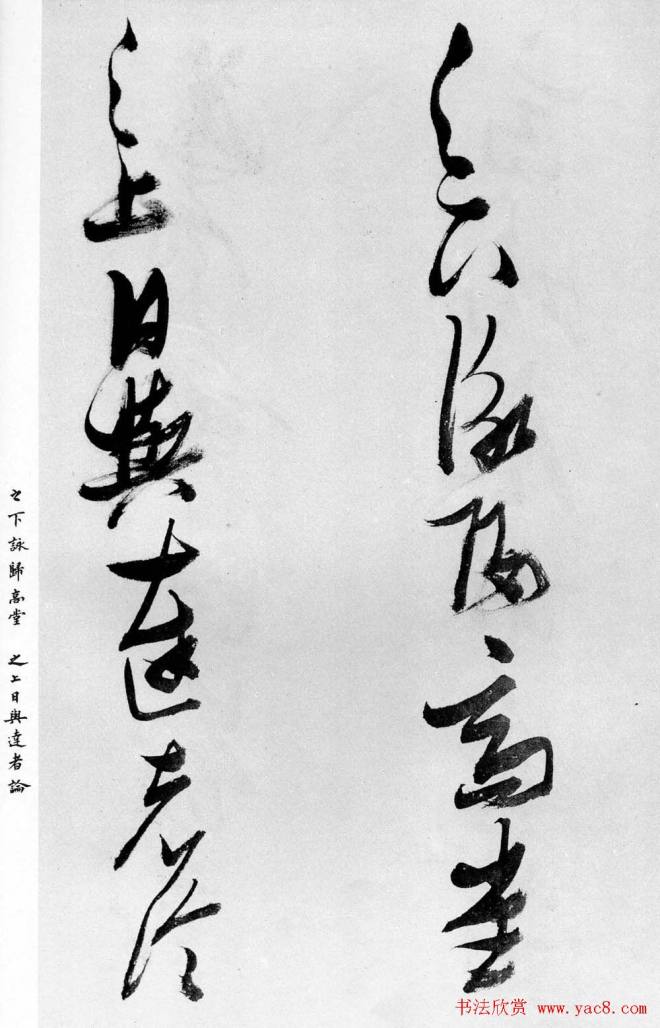 之下詠歸高堂
之上日與達者論
之下詠歸高堂　之上日與達者論
书法欣赏 www.yac8.com